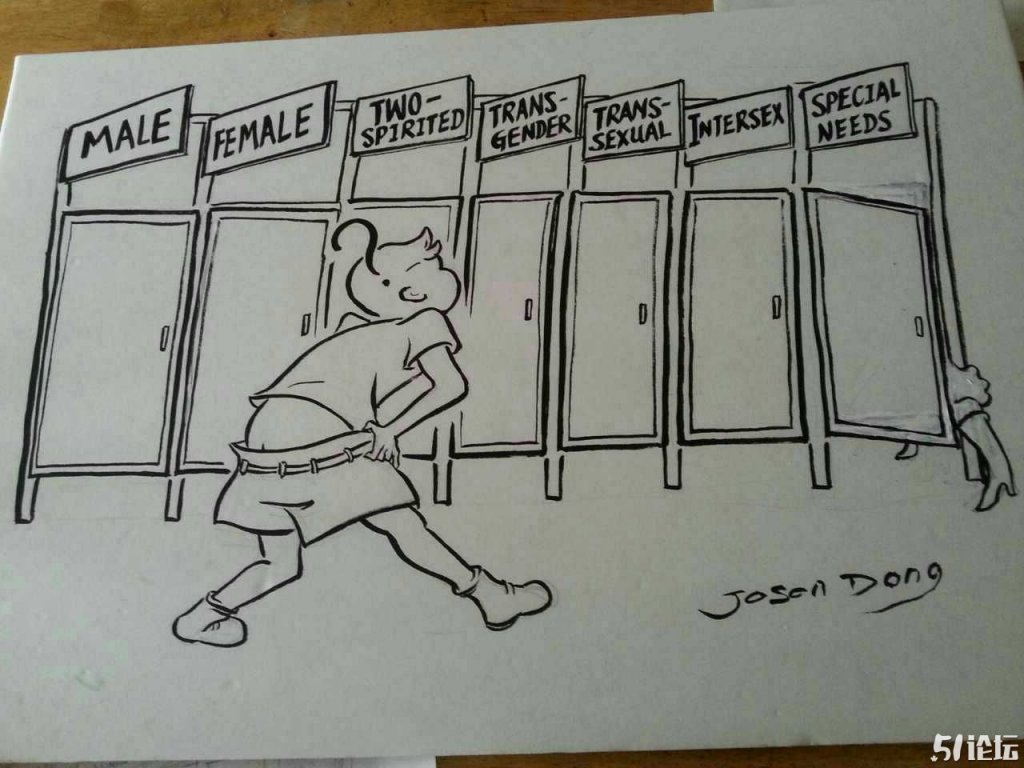 MALE
FEMALE
TWO-
SPIRITED
TRANS-
GENDER
TRANS-
SEXUAL
INTERSEX
SPECIAL
NEEDS
Josen Dong
51论坛